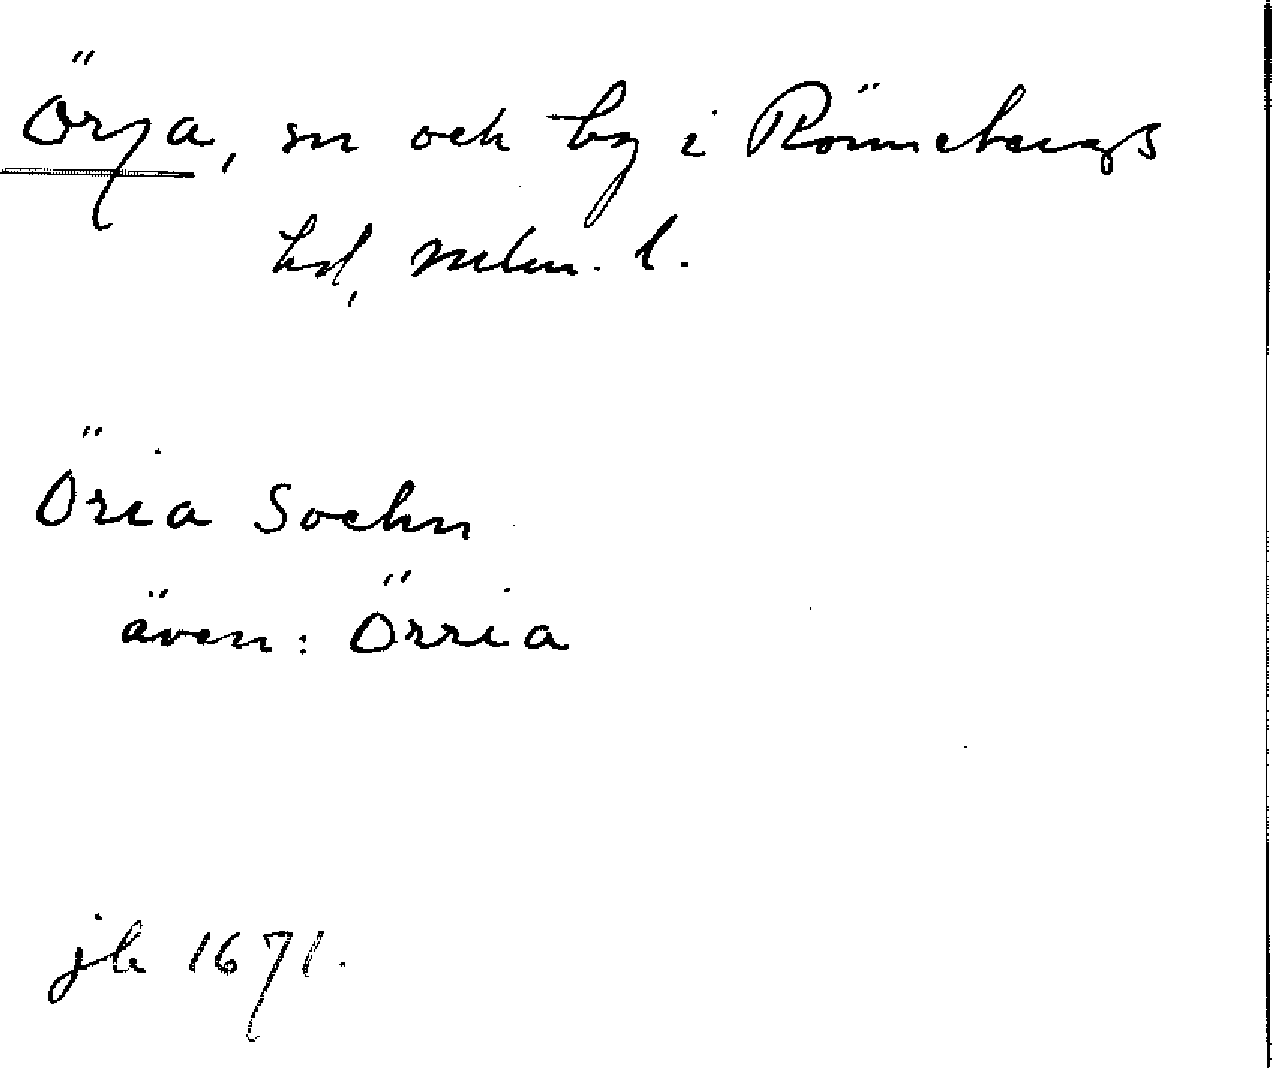 Örja, sn och by i Rönnebergs
hd, Mlm. l.
Öria Sochn
även: Örria
jb 1671.